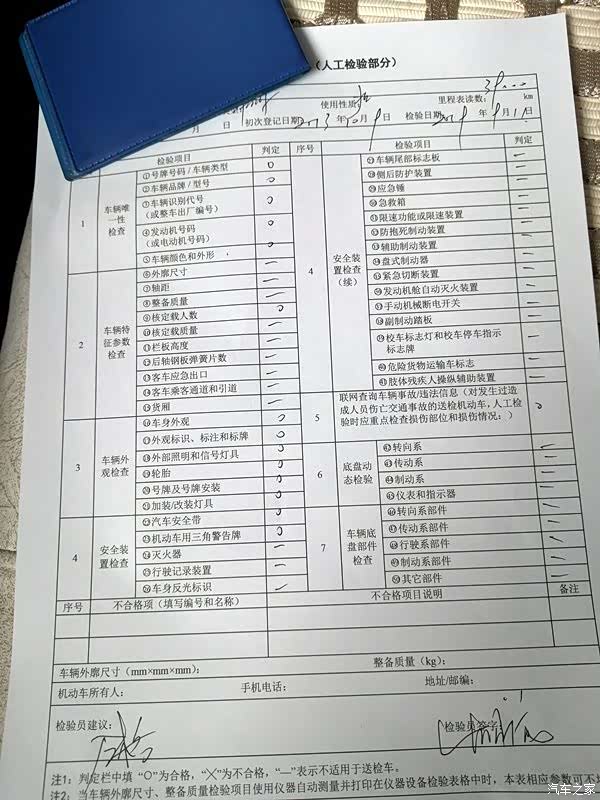 （人工检验部分）
使用性质： 里程表读数： km
月 日 初次登记日期 2013 年 10 月 9 日 检验日期 2019 年 9 月 11 日
检验项目 判定 序号 检验项目 判定
1 车辆唯一性检查
①号牌号码/车辆类型 O
②车辆品牌/型号 O
③车辆识别代号（或整车出厂编号） O
④发动机号码（或电动机号码） O
⑤车辆颜色和外形 O
2 车辆特征参数检查
⑥外廓尺寸 —
⑦轴距 —
⑧整备质量 —
⑨核定载人数 O
⑩核定载质量 —
⑪栏板高度 —
⑫后轴钢板弹簧片数 —
⑬客车应急出口 —
⑭客车乘客通道和引道 —
⑮货厢 —
3 车辆外观检查
⑯车身外观 O
⑰外观标识、标注和标牌 O
⑱外部照明和信号灯具 O
⑲轮胎 O
⑳号牌及号牌安装 O
㉑加装/改装灯具 O
4 安全装置检查
㉒汽车安全带 O
㉓机动车用三角警告牌 O
㉔灭火器 —
㉕行驶记录装置 —
㉖车身反光标识 —
4 安全装置检查（续）
㉗车辆尾部标志板 —
㉘侧后防护装置 —
㉙应急锤 —
㉚急救箱 —
㉛限速功能或限速装置 —
㉜防抱死制动装置 —
㉝辅助制动装置 —
㉞盘式制动器 —
㉟紧急切断装置 —
㊱发动机舱自动灭火装置 —
㊲手动机械断电开关 —
㊳副制动踏板 —
㊴校车标志灯和校车停车指示标志牌 —
㊵危险货物运输车标志 —
㊶肢体残疾人操纵辅助装置 —
5 联网查询车辆事故/违法信息（对发生过造成人员伤亡交通事故的送检机动车，人工检验时应重点检查损伤部位和损伤情况：） O
6 底盘动态检验
㊷转向系 —
㊸传动系 —
㊹制动系 —
㊺仪表和指示器 —
7 车辆底盘部件检查
㊻转向系部件 —
㊼传动系部件 —
㊽行驶系部件 —
㊾制动系部件 —
㊿其它部件 —
序号 不合格项（填写编号和名称） 不合格项目说明 备注
车辆外廓尺寸（mm×mm×mm）： 整备质量（kg）：
机动车所有人： 手机电话： 地址/邮编：
检验员建议： 检验员签字：
注1：判定栏中填 “O”为合格，“X”为不合格，“—”表示不适用于送检车。
注2：当车辆外廓尺寸、整备质量检验项目使用仪器自动测量并打印在仪器设备检验表格中时，本表相应参数可不
汽车之家